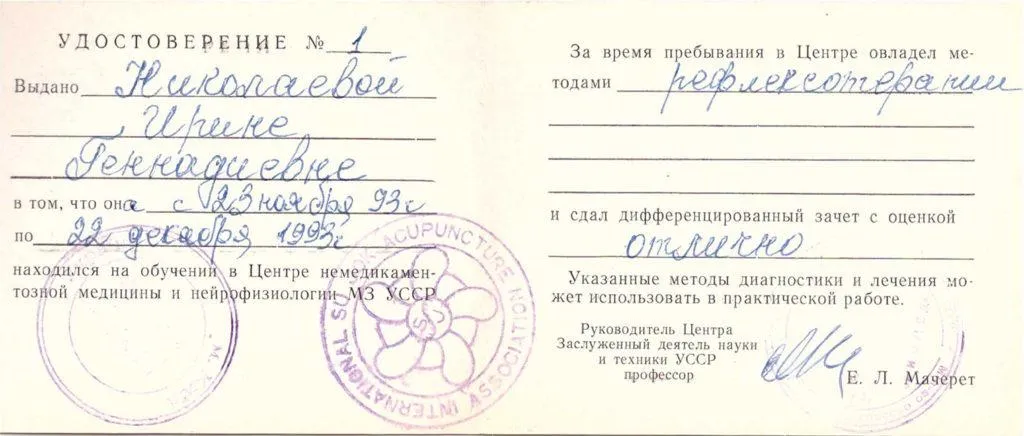 УДОСТОВЕРЕНИЕ № 1
Выдано Николаевой
Ирине
Геннадиевне
в том, что она с 23 ноября 93 г
по 22 декабря 1993 г
находился на обучении в Центре немедикамен-
тозной медицины и нейрофизиологии МЗ УССР
INTERNATIONAL SU JOK ACUPUNCTURE ASSOCIATION
За время пребывания в Центре овладел ме-
тодами рефлексотерапии
и сдал дифференцированный зачет с оценкой
отлично
Указанные методы диагностики и лечения мо-
жет использовать в практической работе.
Руководитель Центра
Заслуженный деятель науки
и техники УССР
профессор
Е. Л. Мачерет